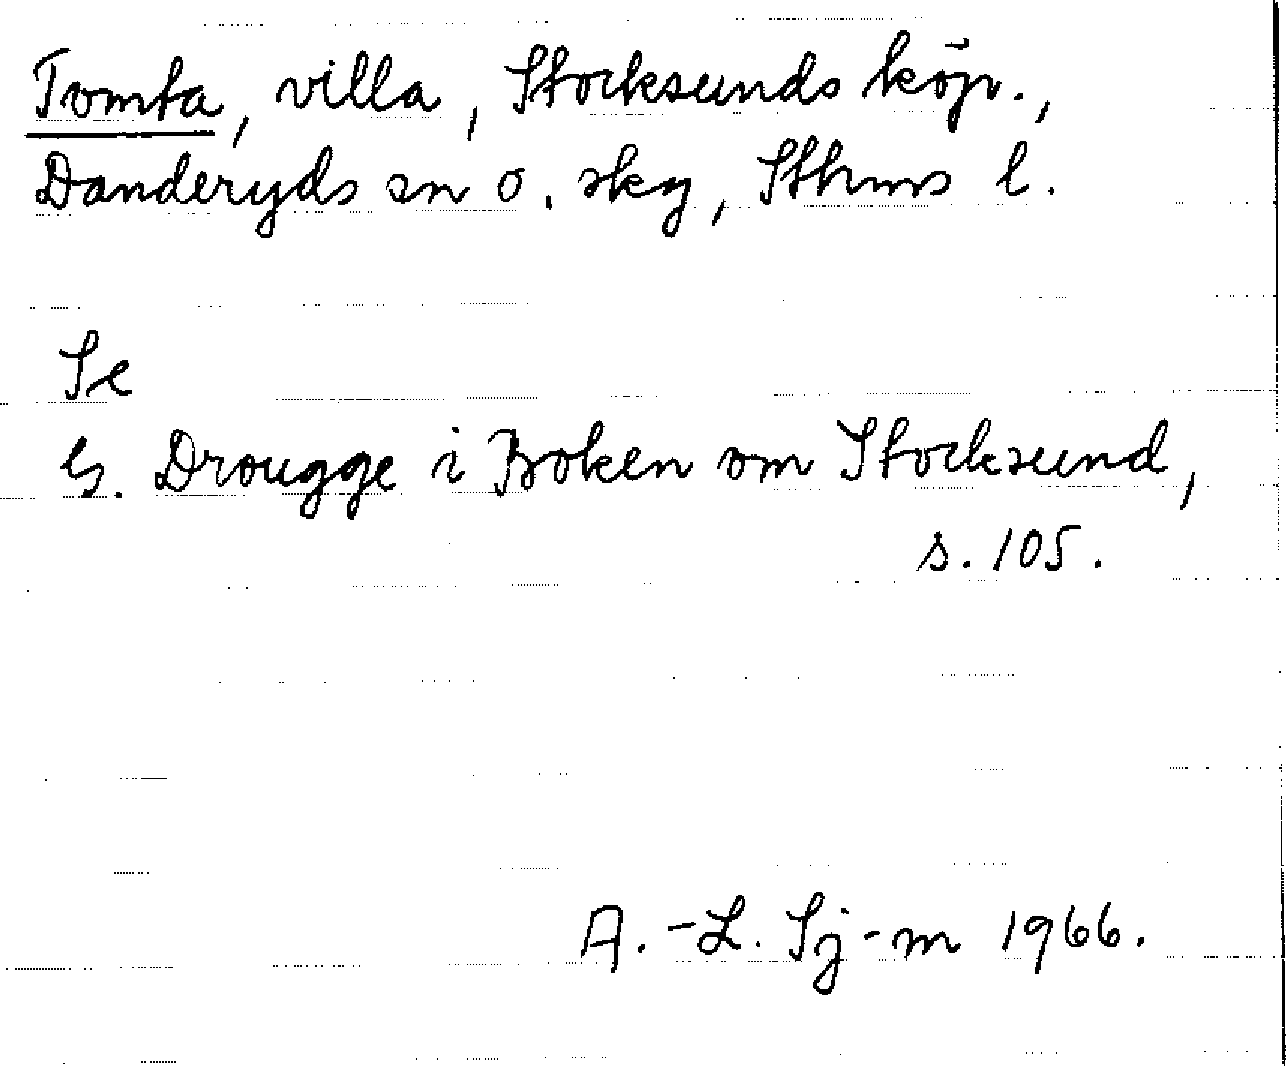 Tomta, villa, Stocksunds köp.,
Danderyds sn o. skg, Sthms l.
Se
G. Drougge i Boken om Stocksund,
s. 105.
A.-L. Sj-m 1966.